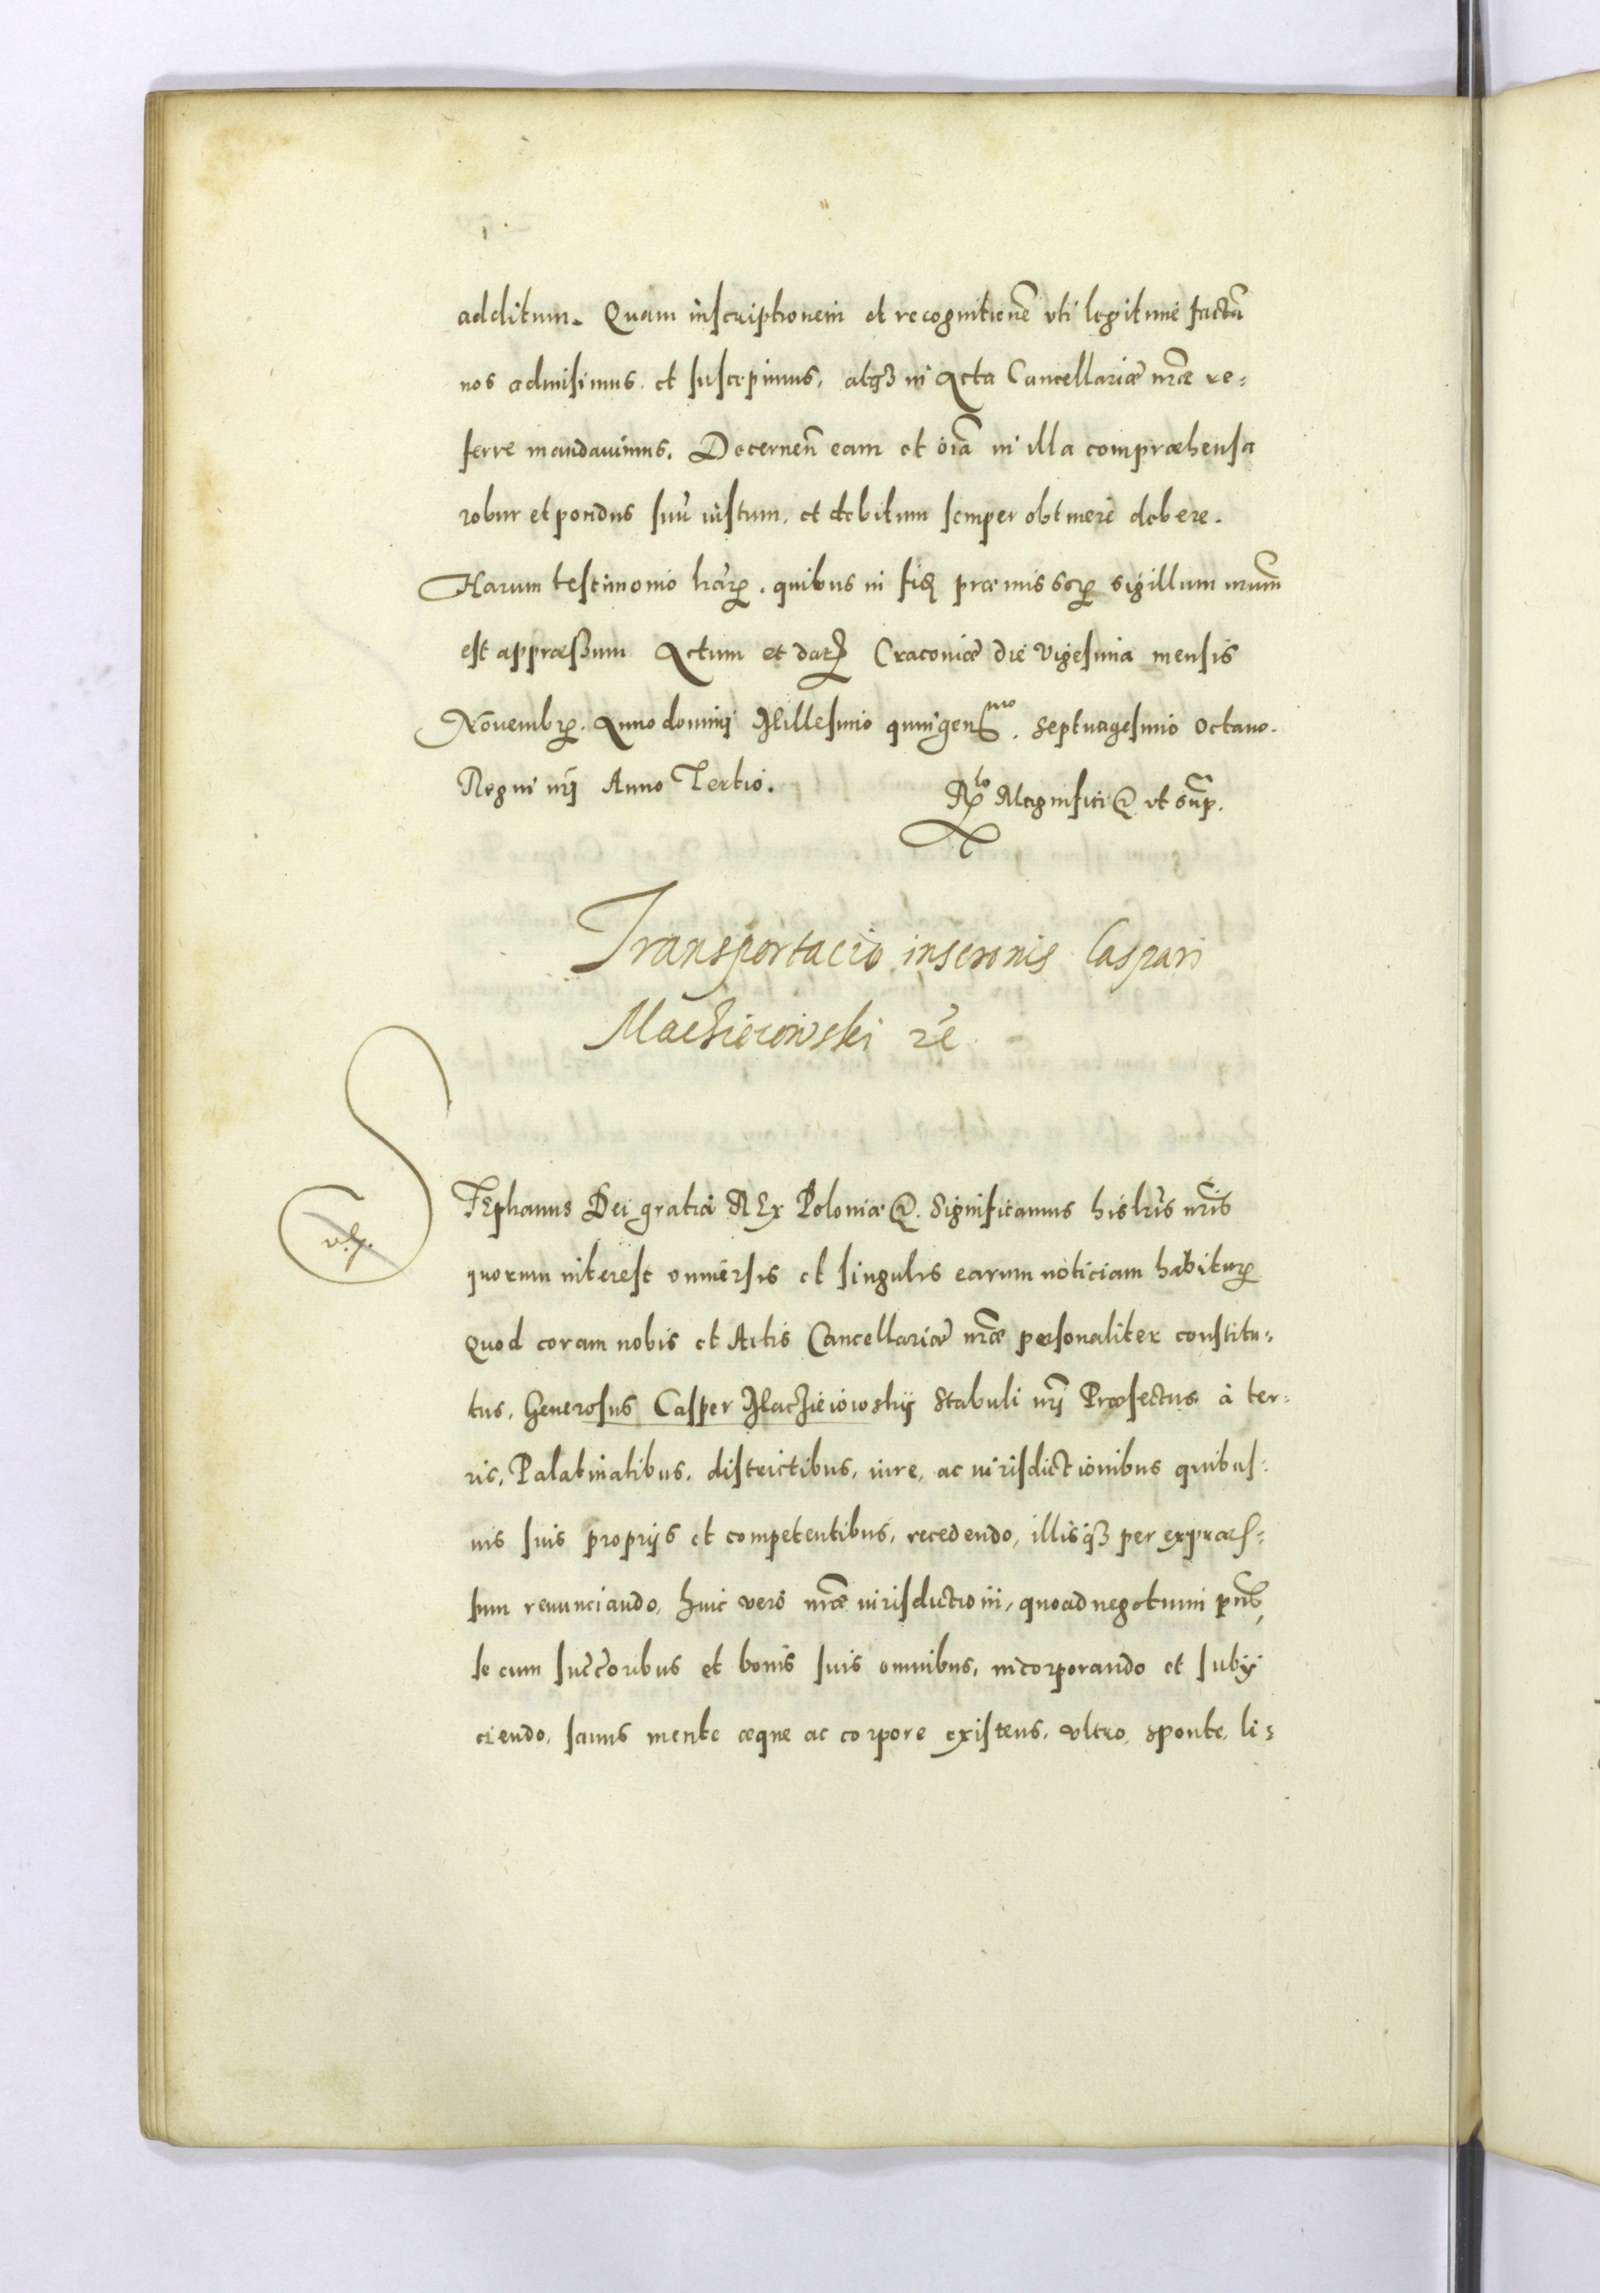 additum. Quam inscriptionem et recognitionẽ vti legitimè factã
nos admisimus et suscepimus, atqȝ in Acta Cancellariæ nr̃æ re-
ferre mandauimus. Decernen̄ eam et oĩa in illa compræhensa
robur et pondus suũ iustum, et debitum semper obtinere debere.
Harum testimonio lr̃arꝝ. quibus in fiđ præmissorꝝ sigillum nr̃um
est appræssum Actum et dat̃ Cracoviæ die Vigesima mensis
Novembrꝭ. Anno domini Millesimo quingenᵐᵒ. Septuagesimo Octauo.
Regni nr̃i Anno Tertio. Rᵒ Magnifici &. vt sup̃.
Transportacio inscr̃onis Caspari
Maczieiowski ꝛc̃
STEphanus Dei gratia REx Poloniæ &. Significamus his lr̃is nr̃is
quorum interest vniuersis et singulis earum noticiam habiturꝭ
Quod coram nobis et Actis Cancellariæ nr̃æ personaliter constitu-
tus, Generosus Casper Maczieiowsky Stabuli nr̃i Præfectus à ter-
ris, Palatinatibus, districtibus, iure, ac iurisdictionibus quibus-
uis suis proprijs et competentibus, recedendo, illisqȝ per expræs-
sum renunciando, huic verò nr̃æ iurisdictioni, quoad negotium pñs,
se cum succ̃oribus et bonis suis omnibus, incorporando et subij
ciendo, sanus mente æque ac corpore existens, vltro, sponte, li-